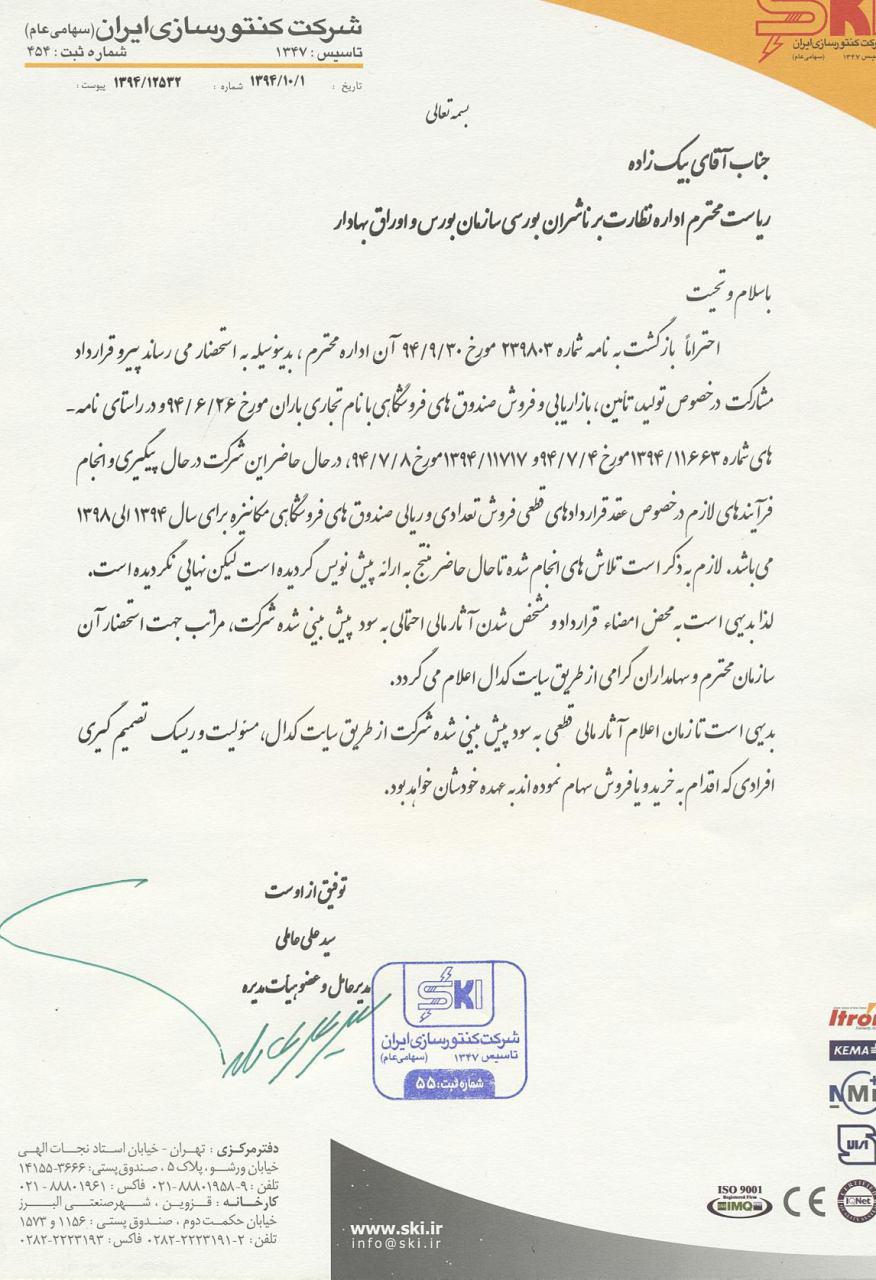 شرکت کنتورسازی ایران (سهامی عام)
تاسیس : ۱۳۴۷ شماره ثبت : ۴۵۴
تاریخ : ۱۳۹۴/۱۰/۱ شماره : ۱۳۹۴/۱۲۵۳۲ پیوست :
SKI
شرکت کنتورسازی ایران
تاسیس ۱۳۴۷ (سهامی عام)
بسمه تعالی
جناب آقای بیک زاده
ریاست محترم اداره نظارت بر ناشران بورسی سازمان بورس و اوراق بهادار
باسلام و تحیت
احتراماً بازگشت به نامه شماره ۲۳۹۸۰۳ مورخ ۹۴/۹/۳۰ آن اداره محترم ، بدینوسیله به استحضار می رساند پیرو قرارداد
مشارکت درخصوص تولید، تأمین، بازاریابی و فروش صندوق های فروشگاهی با نام تجاری باران مورخ ۹۴/۶/۲۶ و در راستای نامه-
های شماره ۱۳۹۴/۱۱۶۶۳ مورخ ۹۴/۷/۴ و ۱۳۹۴/۱۱۷۱۷ مورخ ۹۴/۷/۸، در حال حاضر این شرکت در حال پیگیری و انجام
فرآیندهای لازم درخصوص عقد قراردادهای قطعی فروش تعدادی و ریالی صندوق های فروشگاهی مکانیزه برای سال ۱۳۹۴ الی ۱۳۹۸
می باشد. لازم به ذکر است تلاش های انجام شده تاحال حاضر منتج به ارائه پیش نویس گردیده است لیکن نهایی نگردیده است.
لذا بدیهی است به محض امضاء قرارداد و مشخص شدن آثار مالی احتمالی به سود پیش بینی شده شرکت، مراتب جهت استحضار آن
سازمان محترم و سهامداران گرامی از طریق سایت کدال اعلام می گردد.
بدیهی است تا زمان اعلام آثار مالی قطعی به سود پیش بینی شده شرکت از طریق سایت کدال، مسئولیت و ریسک تصمیم گیری
افرادی که اقدام به خرید و یا فروش سهام نموده اند به عهده خودشان خواهد بود.
توفیق از اوست
سید علی عاملی
مدیرعامل و عضو هیأت مدیره
SKI
شرکت کنتورسازی ایران
تاسیس ۱۳۴۷ (سهامی عام)
شماره ثبت: ۵۵
Itron
KEMA
NMi
ISO 9001
Registered Firm
IMQ
CE
IQNet
دفتر مرکزی : تهران - خیابان استاد نجات الهی
خیابان ورشو، پلاک ۵ ، صندوق پستی: ۳۶۶۶-۱۴۱۵۵
تلفن : ۹-۸۸۸۰۱۹۵۸-۰۲۱ فاکس : ۸۸۸۰۱۹۶۱ - ۰۲۱
کارخانه : قزوین ، شهرصنعتی البرز
خیابان حکمت دوم ، صندوق پستی : ۱۱۵۶ و ۱۵۷۳
تلفن : ۲-۲۲۲۳۱۹۱-۰۲۸۲ فاکس: ۲۲۲۳۱۹۳-۰۲۸۲
www.ski.ir
info@ski.ir